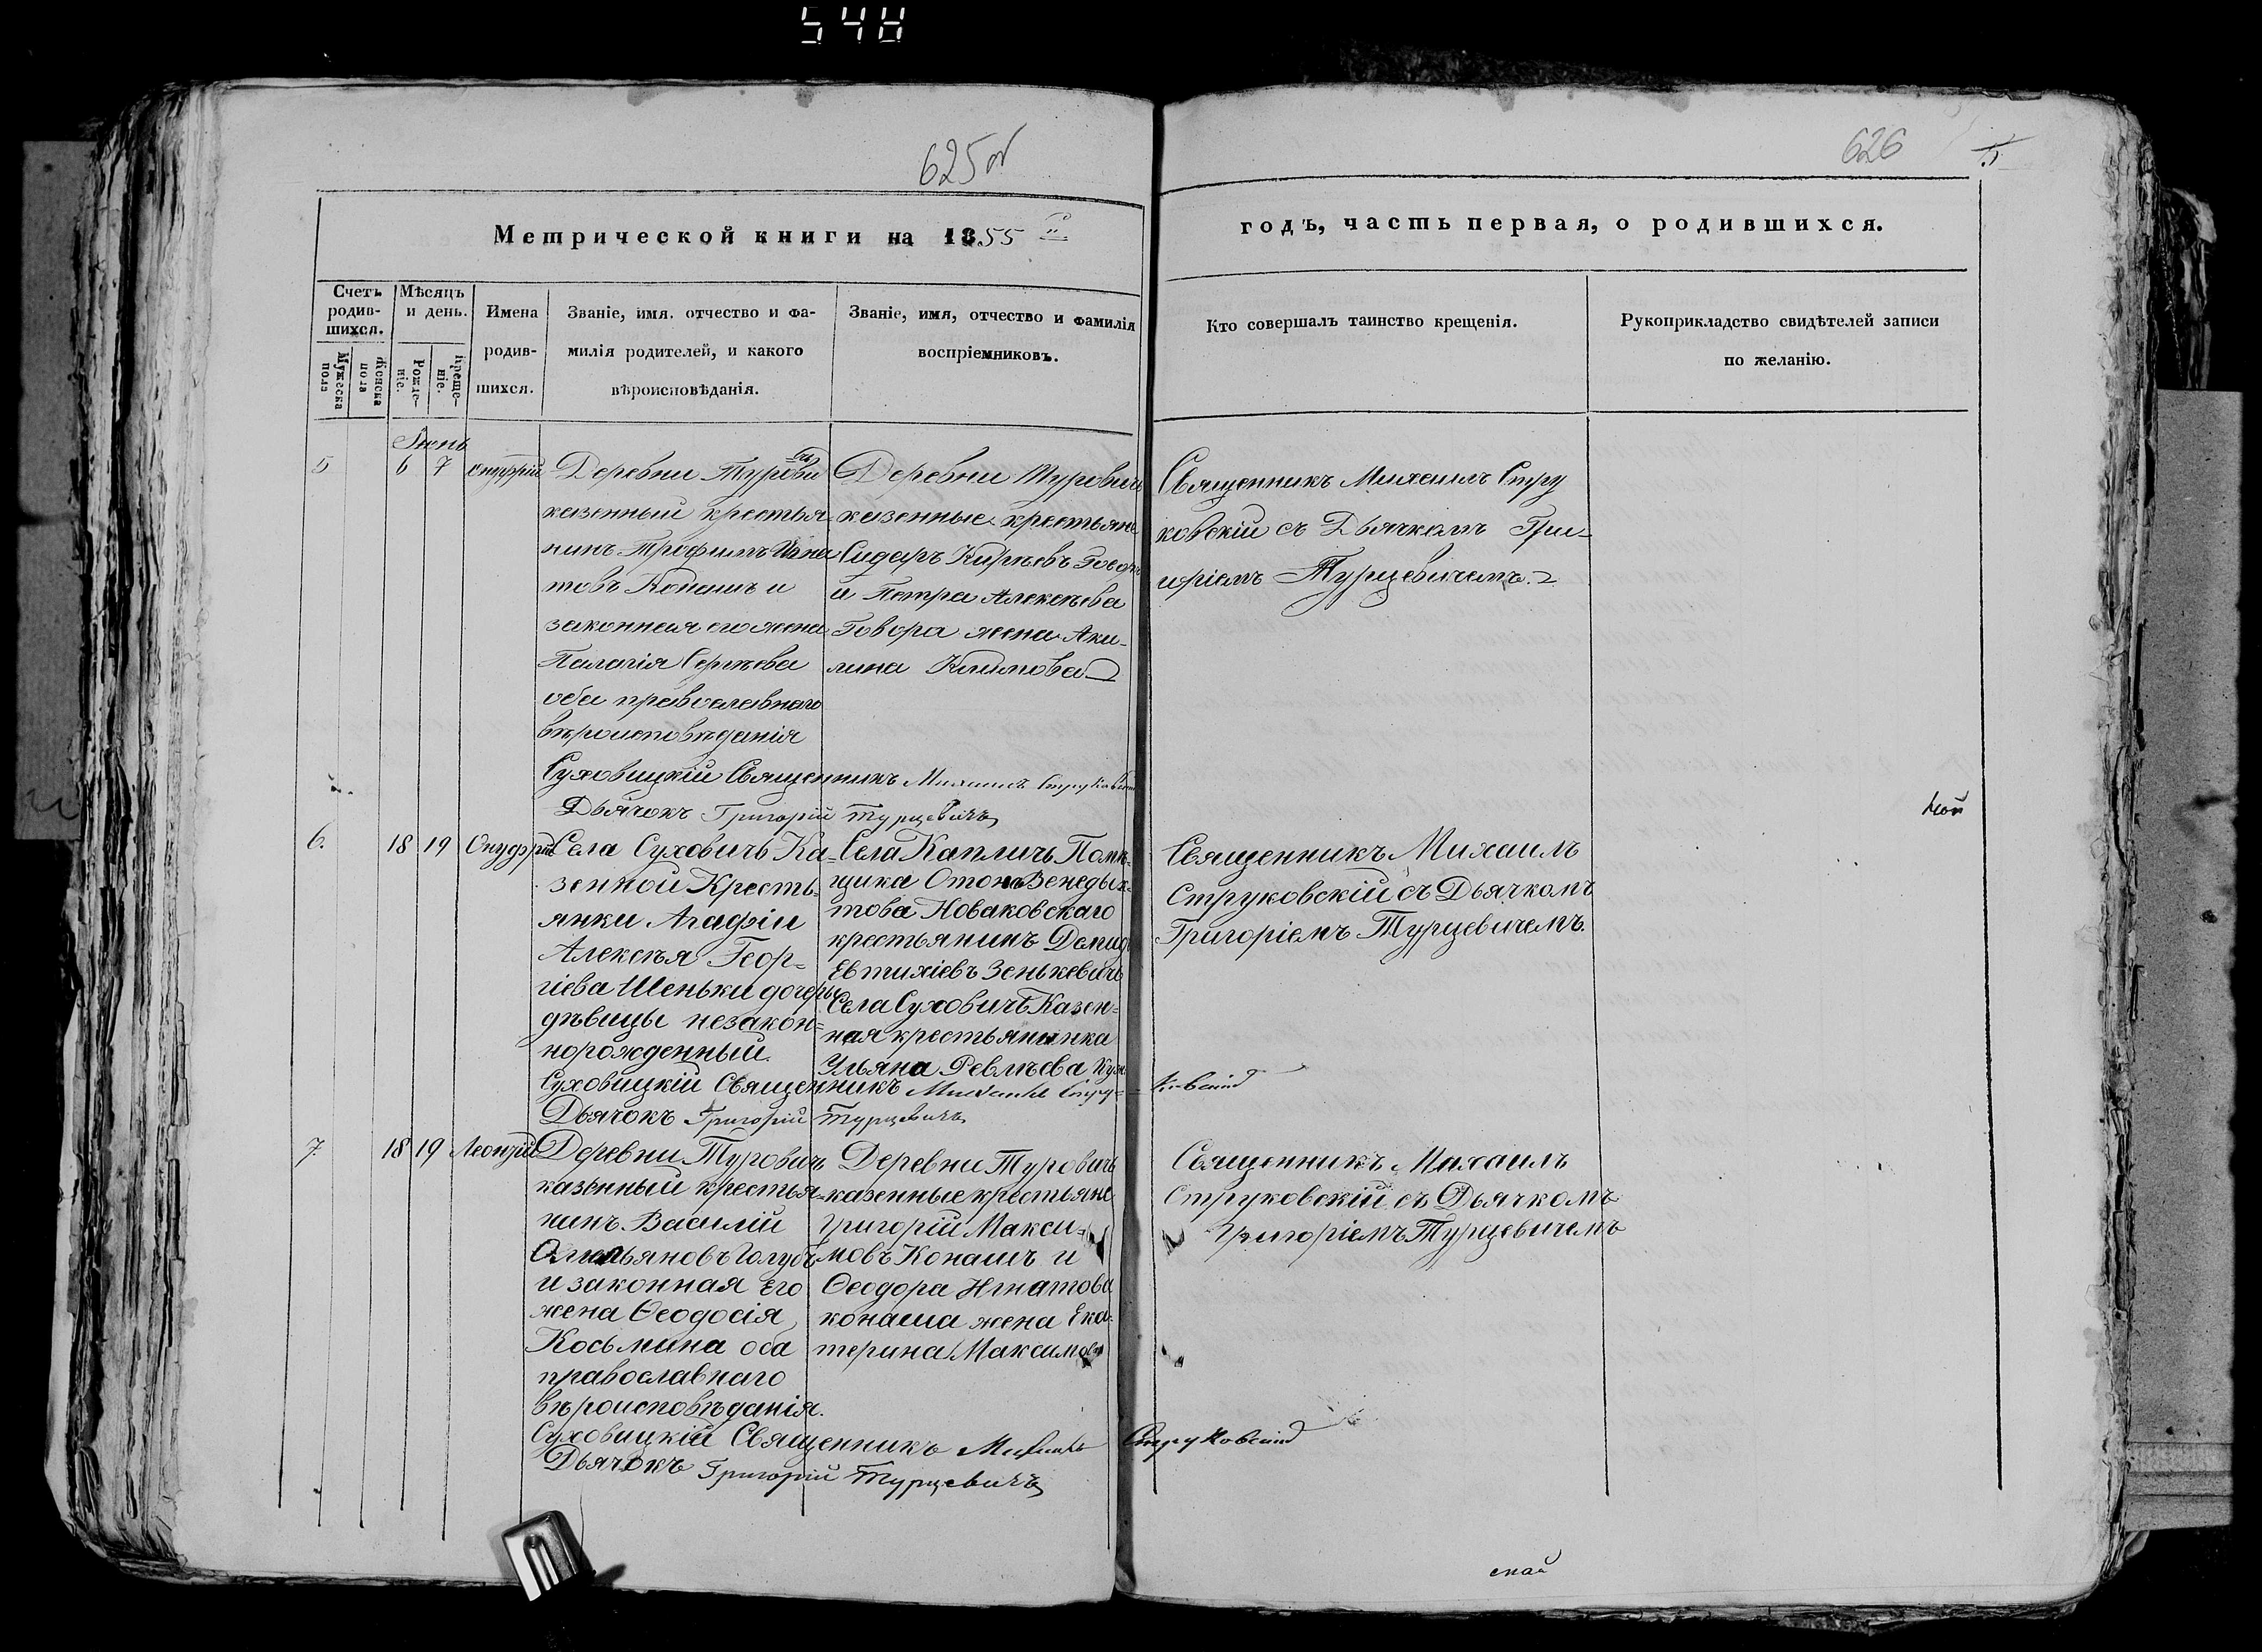 548
625 об
626
Метрической книги на 1855
годъ, часть первая, о родившихся.
Счетъ родившихся.
Мужеска пола
Женска пола
Мѣсяцъ и день.
Рожденіе.
Крещеніе.
Имена
родив-
шихся.
Званіе, имя. отчество и фа-
милія родителей, и какого
вѣроисповѣданія.
Званіе, имя, отчество и фамилія
воспріемниковъ.
Кто совершалъ таинство крещенія.
Рукоприкладство свидѣтелей записи
по желанію.
Іюнь
5 6 7 Онуфрій
Деревни Турович
казенный крестья-
нинъ Трофимъ Игна
товъ Конашъ и
законная его жена
Палагія Сергѣева
оба православнаго
вѣроисповѣданія
Деревни Туровичь
казенные крестьяне
Сидаръ Кирѣевъ
и Петра Алексѣева
Говора жена Аки-
лина Климова
Священникъ Михаилъ Стру
ковскій съ Дьячкомъ Гри-
горіемъ Турцевичемъ.
Суховицкій Священникъ Михаилъ Струковскій
Дьячокъ Григорій Турцевичъ
6. 18 19 Онуфрій
Села Суховичь Ка-
зенной Кресть-
янки Агафіи
Алексѣя Геор-
гіева Шеньки дочери
дѣвицы незакон-
норожденный.
Села Капличь Помѣ-
щика Отона Венедык-
това Новаковскаго
крестьянинъ Демидъ
Евтихіевъ Зенькевичь
Села Суховичь Казен-
ная крестьянинка
Ульяна
Священникъ Михаилъ
Струковскій съ Дьячкомъ
Григоріемъ Турцевичемъ.
Суховицкій Священникъ Михаилъ Стру-ковскій
Дьячокъ Григорій Турцевичъ
7 18 19 Леонтій
Деревни Туровичь
казенный крестья-
нинъ Василій
Омельяновъ Голубъ
и законная Его
жена Ѳеодосія
Косьмина оба
православнаго
вѣроисповѣданія.
Деревни Туровичь
казенные крестьяне
Григорій Макси-
мовъ Конашъ и
Ѳеодора Игнатова
конаша жена Ека-
терина Максимова
Священникъ Михаилъ
Струковскій съ Дьячкомъ
Григоріемъ Турцевичемъ
Суховицкій Священникъ Михаилъ Струковскій
Дьячокъ Григорій Турцевичъ